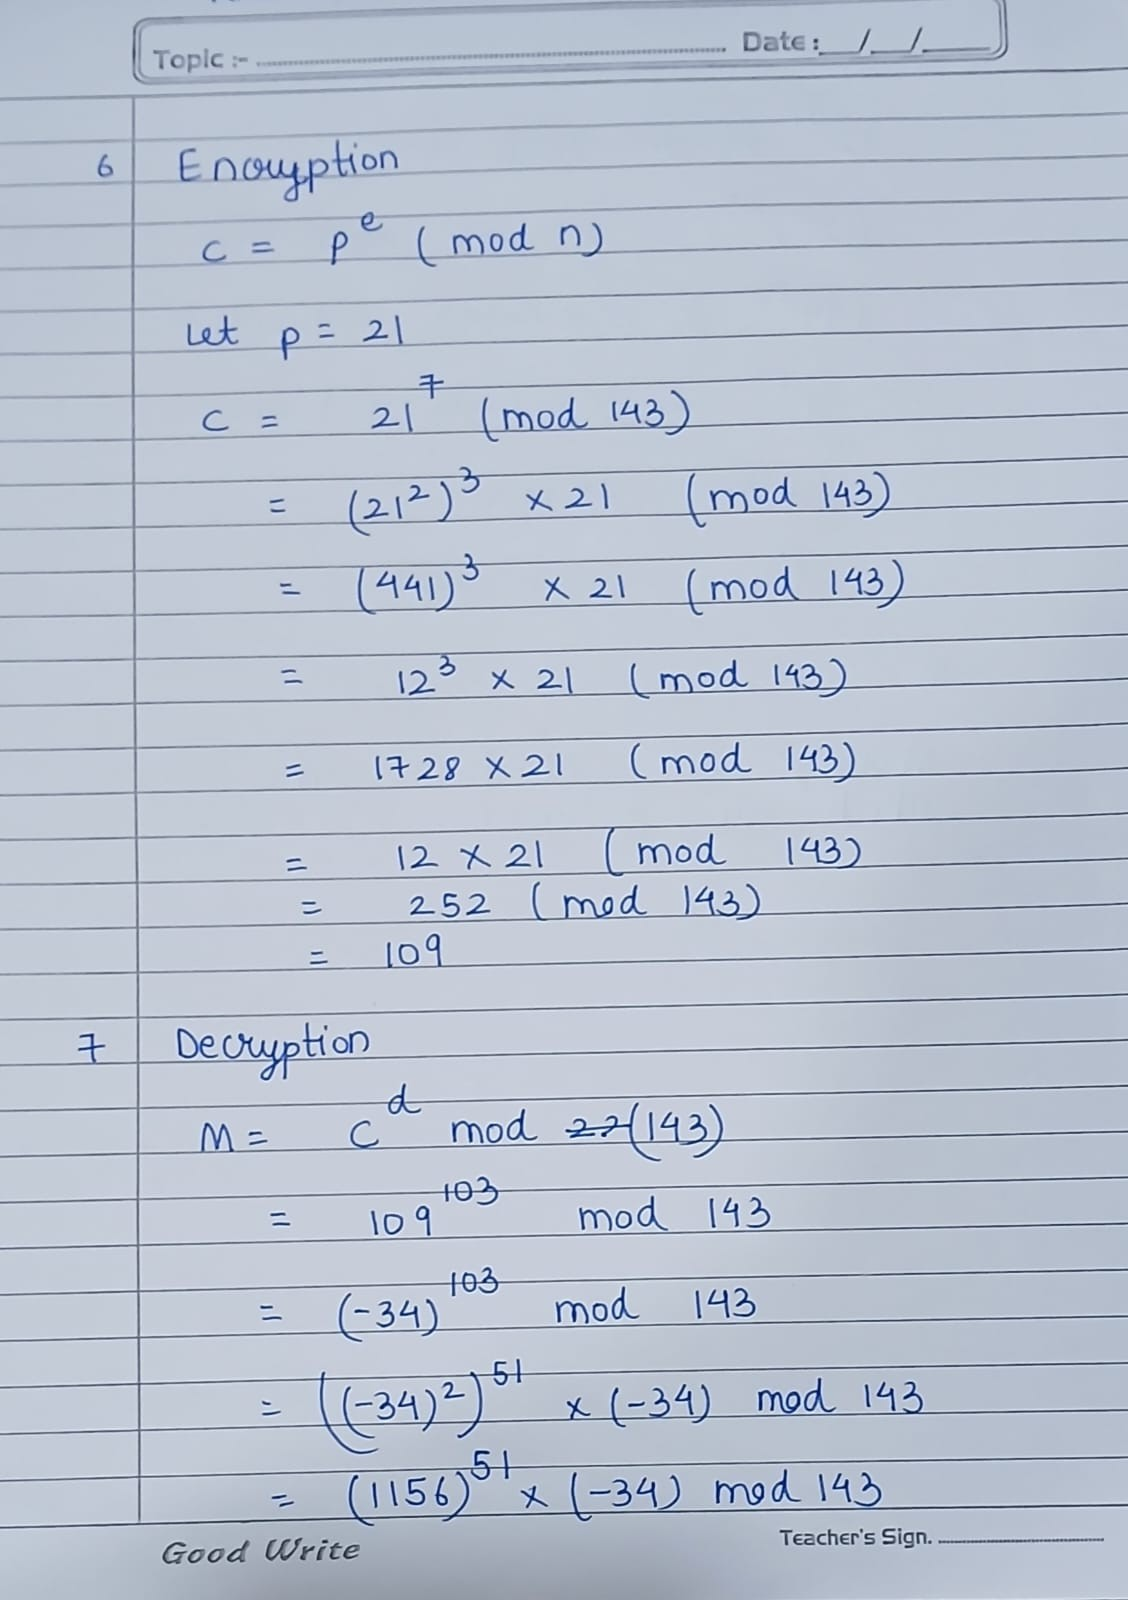 Topic :- Date : / /
6 Encryption
C = p^e (mod n)
Let p = 21
C = 21^7 (mod 143)
= (21²)³ × 21 (mod 143)
= (441)³ × 21 (mod 143)
= 12³ × 21 (mod 143)
= 1728 × 21 (mod 143)
= 12 × 21 (mod 143)
= 252 (mod 143)
= 109
7 Decryption
M = C^d mod (143)
= 109^103 mod 143
= (-34)^103 mod 143
= ((-34)²)^51 × (-34) mod 143
= (1156)^51 × (-34) mod 143
Good Write Teacher's Sign.